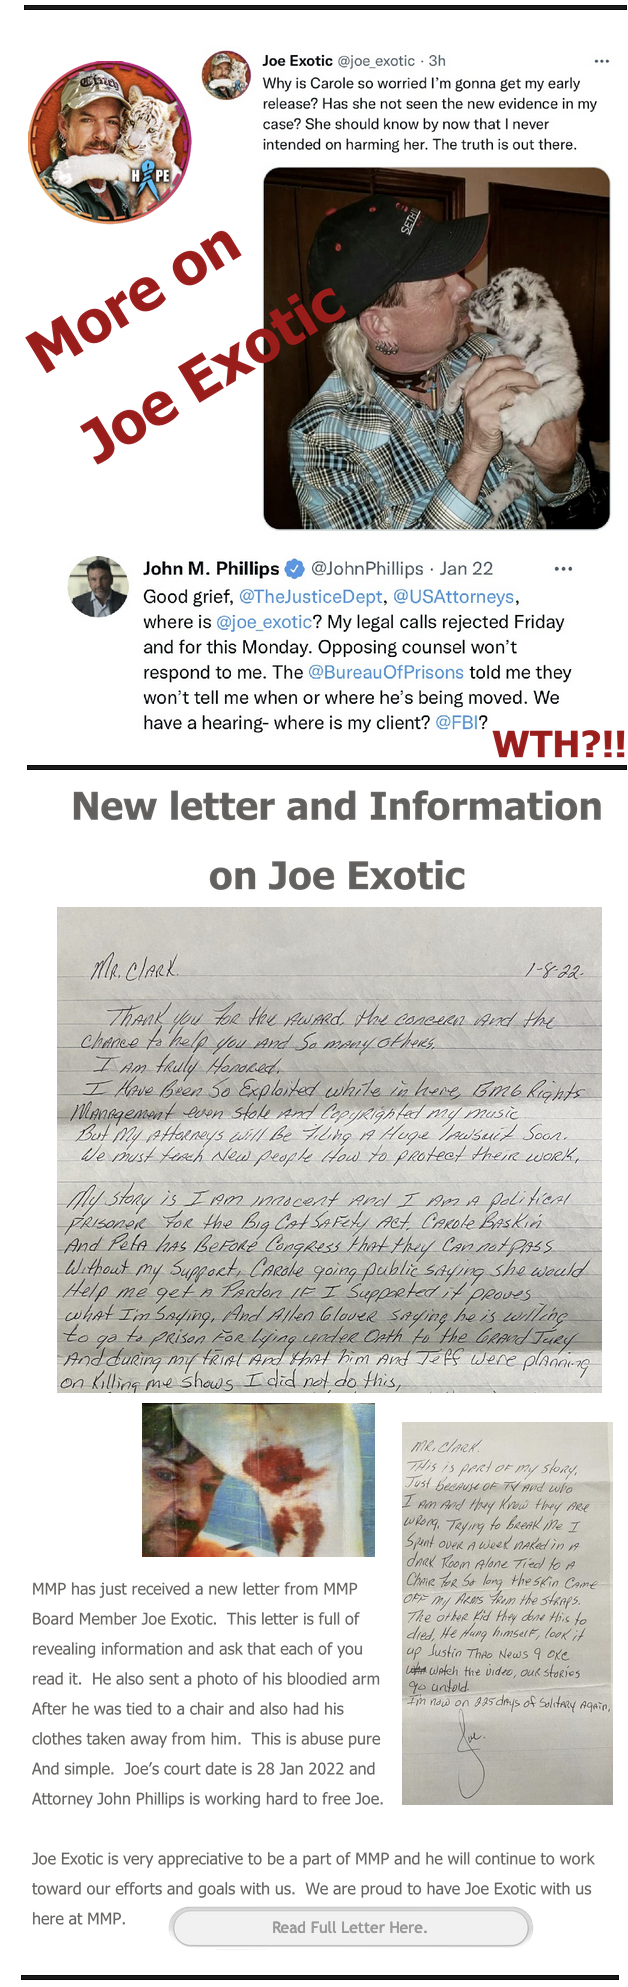 Joe Exotic @joe_exotic · 3h
Why is Carole so worried I'm gonna get my early
release? Has she not seen the new evidence in my
case? She should know by now that I never
intended on harming her. The truth is out there.
HOPE
SETH
More on
Joe Exotic
John M. Phillips @JohnPhillips · Jan 22
Good grief, @TheJusticeDept, @USAttorneys,
where is @joe_exotic? My legal calls rejected Friday
and for this Monday. Opposing counsel won't
respond to me. The @BureauOfPrisons told me they
won't tell me when or where he's being moved. We
have a hearing- where is my client? @FBI?
WTH?!!
New letter and Information
on Joe Exotic
Mr. Clark. 1-8-22.
Thank you for the award, the concern and the
chance to help you and so many others,
I am truly Honored.
I Have Been So Exploited while in here, BMG Rights
Management even stole and Copyrighted my music
But My Attorneys will Be Filing A Huge lawsuit Soon.
We must teach New people How to protect their work,
My Story is I am innocent And I Am A political
prisoner For the Big Cat Safety Act, Carole Baskin
And Peta has Before Congress that they Can not pass
Without my Support, Carole going public saying she would
Help me get a Pardon IF I Supported it proves
what I'm Saying, And Allen Glover saying he is willing
to go to prison For lying under Oath to the Grand Jury
And during my trial And that him And Jeff were planning
on Killing me shows I did not do this,
Mr. Clark.
This is part of my story,
Just because of TV and who
I am And they Know they are
wrong, Trying to Break Me I
Spent over A week naked in A
dark Room Alone Tied to A
Chair for So long the skin Came
OFF my Arms From the straps.
The other Kid they done this to
died, He Hung himself, look it
up Justin Thao News 9 OKC
watch the video, our stories
go untold
I'm now on 225 days of Solitary Again,
Joe.
MMP has just received a new letter from MMP
Board Member Joe Exotic. This letter is full of
revealing information and ask that each of you
read it. He also sent a photo of his bloodied arm
After he was tied to a chair and also had his
clothes taken away from him. This is abuse pure
And simple. Joe's court date is 28 Jan 2022 and
Attorney John Phillips is working hard to free Joe.
Joe Exotic is very appreciative to be a part of MMP and he will continue to work
toward our efforts and goals with us. We are proud to have Joe Exotic with us
here at MMP.
Read Full Letter Here.